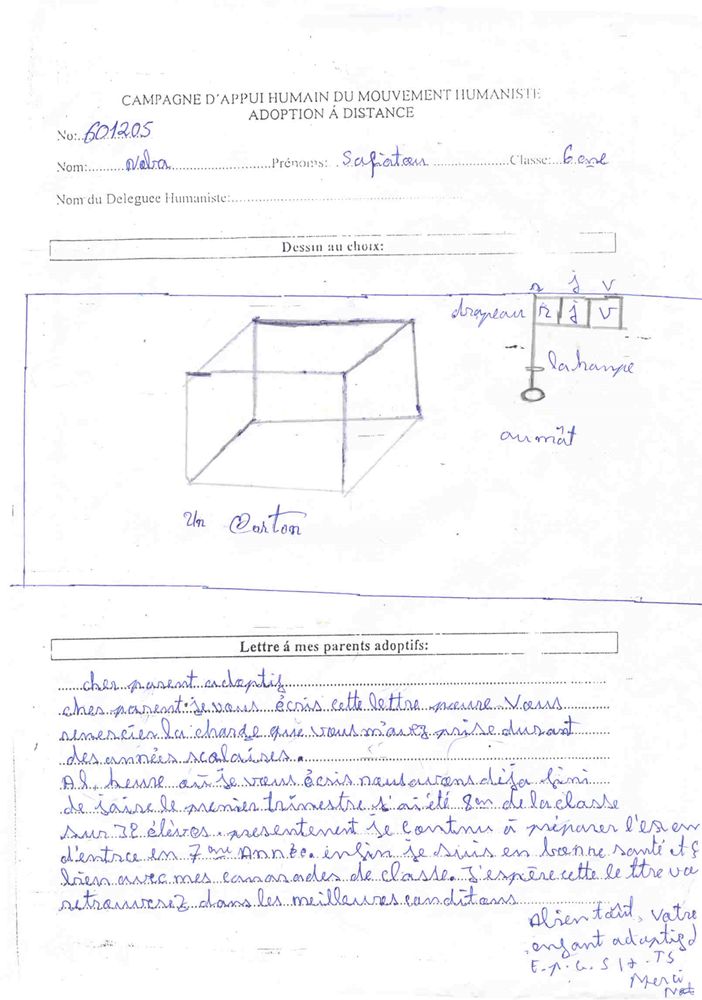 CAMPAGNE D'APPUI HUMAIN DU MOUVEMENT HUMANISTE
ADOPTION Á DISTANCE
No:..601205
Nom:.......Naba..........Prénoms:..Safiatou..........Classe:...6eme
Nom du Deleguee Humaniste:...............
Dessin au choix:
r j v
drapeau r j v
la hampe
au mât
Un Carton
Lettre á mes parents adoptifs:
cher parent adoptif
cher parent je vous écris cette lettre pour Vous
remercier la charge que vous m'avez prise durant
des années scolaires.
A l'heure où je vous écris nous avons déja fini
de faire le premier trimestre j'ai été 8em de la classe
sur 72 élèves. presentement je continu à préparer l'exam
d'entrée en 7eme Année. enfin je suis en bonne santé et ç
bien avec mes camarades de classe. J'espère cette lettre va
retrouverez dans les meilleures conditons
A bientôt, Votre
enfant adoptif d
Merci